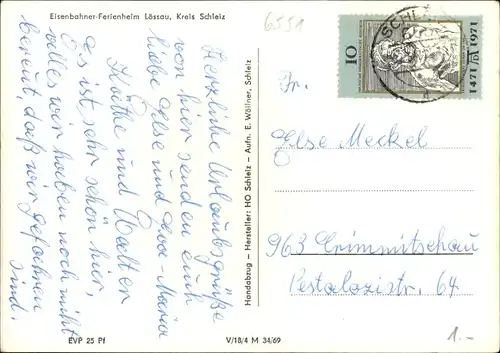 Eisenbahner-Ferienheim Lössau, Kreis Schleiz
6551
Herzliche Urlaubsgrüße
von hier senden euch
liebe Else und Eva-Maria
Käthe und Walter
es ist sehr schön hier,
alles wir haben noch nicht
bereut, daß wir gefahren
sind.
EVP 25 Pf
V/18/4 M 34/69
Handabzug – Hersteller: HO Schleiz – Aufn. E. Wöllner, Schleiz
10
1471 1971
SCHL
Fr.
Else Meckel
963 Crimmitschau
Pestalozistr. 64
1.-